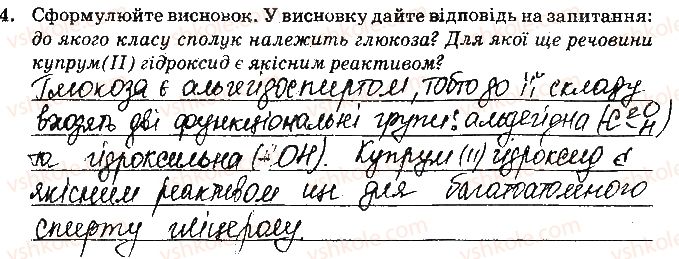 4. Сформулюйте висновок. У висновку дайте відповідь на запитання:
до якого класу сполук належить глюкоза? Для якої ще речовини
купрум(II) гідроксид є якісним реактивом?
Глюкоза є альдегідоспиртом, тобто до її складу
входять дві функціональні групи: альдегідна (C=O H)
та гідроксильна (-OH). Купрум (II) гідроксид є
якісним реактивом ще для багатоатомного
спирту гліцеролу.